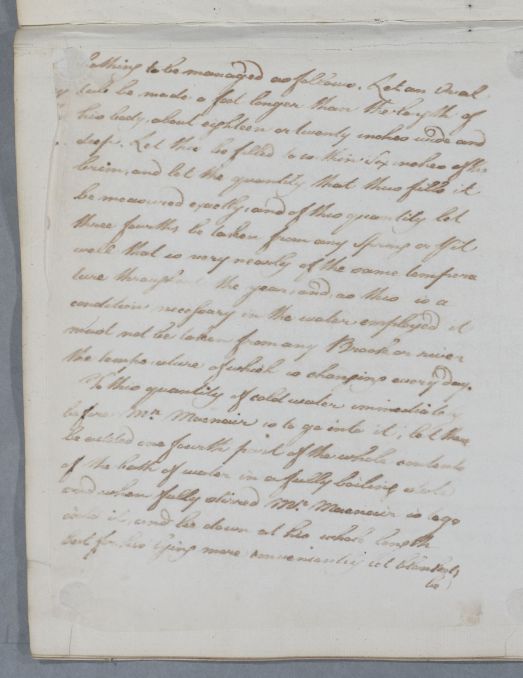 Bathing to be managed as follows. Let an Oval
tub be made a foot longer than the length of
his body, about eighteen or twenty inches wide and
deep. Let this be filled to within Six inches of the
brim, and let the quantity that thus fills it
be measured exactly; and of this quantity let
three fourths be taken from any Spring or
well that is very nearly of the same tempera
ture through the year, and, as this is a
condition necessary in the water employed it
must not be taken from any Brook or river
the temperature of which is changing every day.
To this quantity of cold water immediately
before Mr. Macnair is to go into it, let there
be added one fourth part of the whole contents
of the bath of water in a fully boiling state
and when fully stirred Mr. Macnair is to go
into it, and lie down at his whole length
but for his lying more conveniently let blankets
be